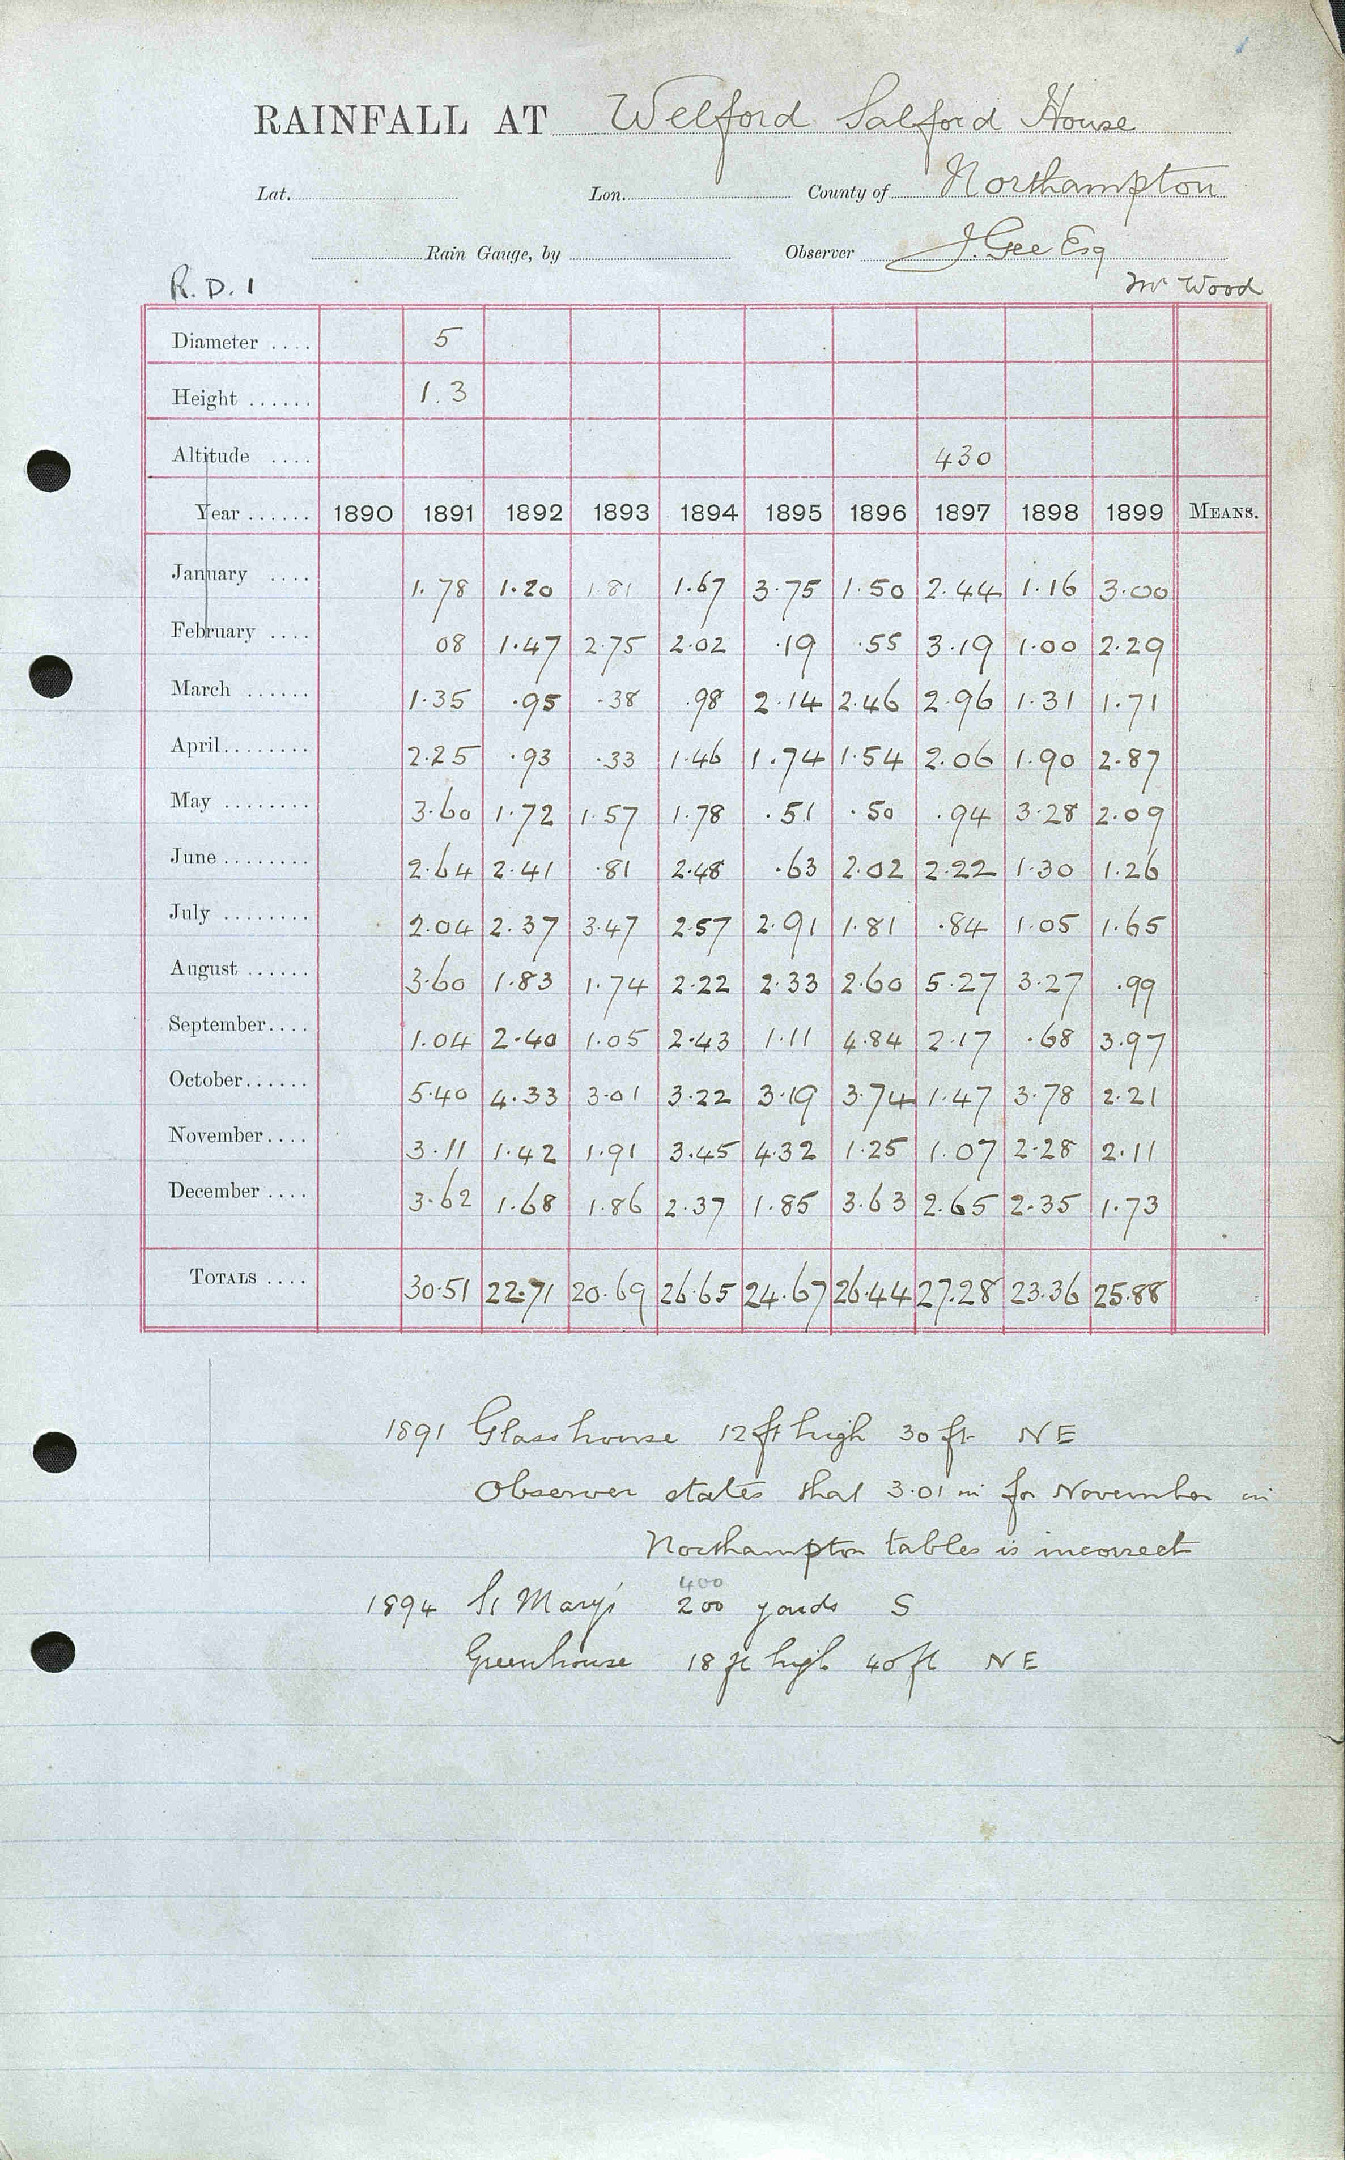 RAINFALL AT Welford Salford House
Lat. Lon. County of Northampton
Rain Gauge, by Observer J. Gee Esq
R. D. 1 Mr Wood
Diameter .... 5
Height ...... 1.3
Altitude .... 430
Year ...... 1890 1891 1892 1893 1894 1895 1896 1897 1898 1899 MEANS.
January .... 1.78 1.20 1.81 1.67 3.75 1.50 2.44 1.16 3.00
February .... 08 1.47 2.75 2.02 .19 .55 3.19 1.00 2.29
March ...... 1.35 .95 .38 .98 2.14 2.46 2.96 1.31 1.71
April........ 2.25 .93 .33 1.46 1.74 1.54 2.06 1.90 2.87
May ........ 3.60 1.72 1.57 1.78 .51 .50 .94 3.28 2.09
June ........ 2.64 2.41 .81 2.48 .63 2.02 2.22 1.30 1.26
July ........ 2.04 2.37 3.47 2.57 2.91 1.81 .84 1.05 1.65
August ...... 3.60 1.83 1.74 2.22 2.33 2.60 5.27 3.27 .99
September.... 1.04 2.40 1.05 2.43 1.11 4.84 2.17 .68 3.97
October...... 5.40 4.33 3.01 3.22 3.19 3.74 1.47 3.78 2.21
November.... 3.11 1.42 1.91 3.45 4.32 1.25 1.07 2.28 2.11
December .... 3.62 1.68 1.86 2.37 1.85 3.63 2.65 2.35 1.73
TOTALS .... 30.51 22.71 20.69 26.65 24.67 26.44 27.28 23.36 25.88
1891 Glass house 12 ft high 30 ft NE
Observer states that 3.01 in for November in
Northampton tables is incorrect
400
1894 St Mary's 200 yards S
Greenhouse 18 ft high 40 ft NE